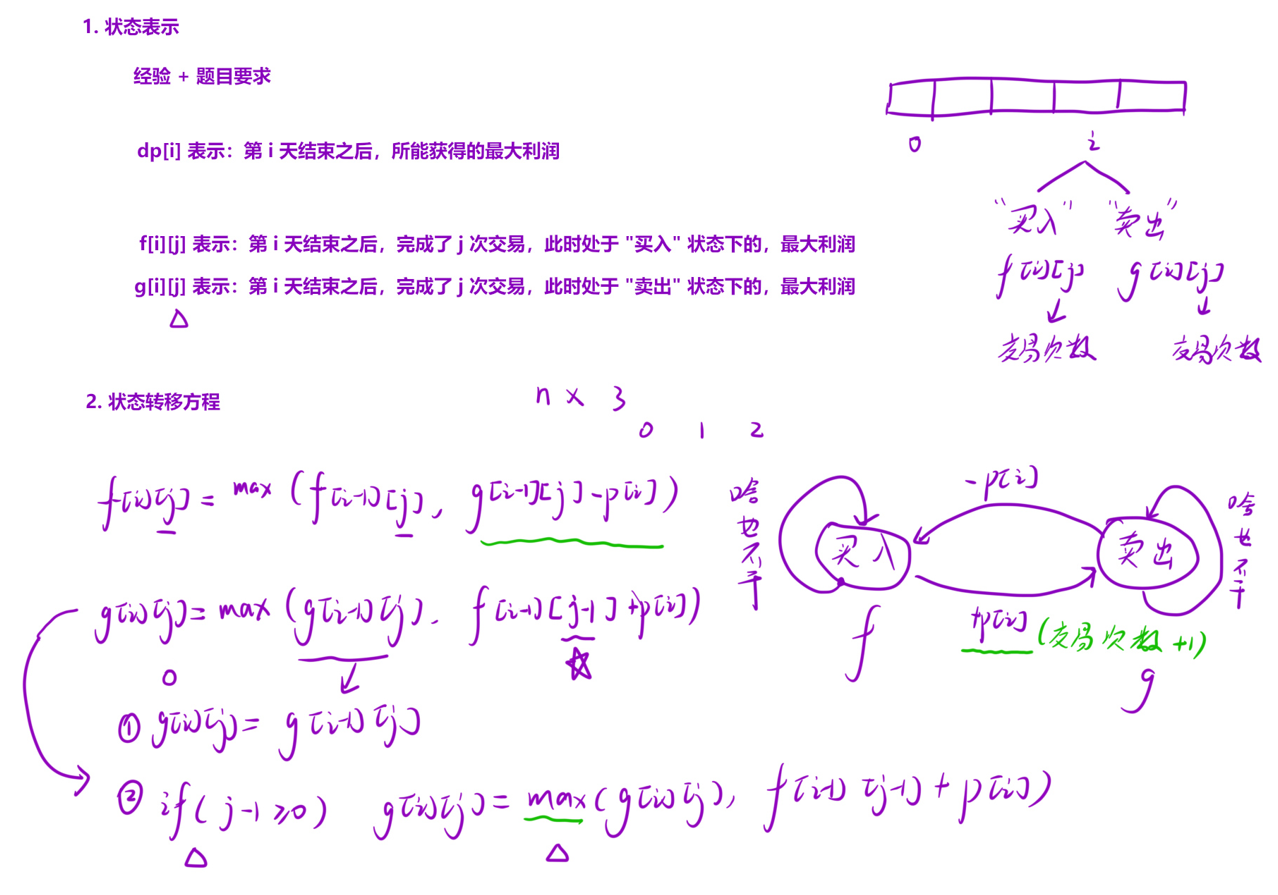 1. 状态表示
经验 + 题目要求
dp[i] 表示：第 i 天结束之后，所能获得的最大利润
f[i][j] 表示：第 i 天结束之后，完成了 j 次交易，此时处于 "买入" 状态下的，最大利润
g[i][j] 表示：第 i 天结束之后，完成了 j 次交易，此时处于 "卖出" 状态下的，最大利润
0 i
"买入" "卖出"
f[i][j] g[i][j]
交易次数 交易次数
2. 状态转移方程
n × 3
0 1 2
f[i][j] = max (f[i-1][j], g[i-1][j] - p[i])
g[i][j] = max (g[i-1][j], f[i-1][j-1] + p[i])
0
① g[i][j] = g[i-1][j]
② if( j-1 ≥ 0) g[i][j] = max( g[i][j], f[i-1][j-1] + p[i])
啥也不干
买入
-p[i]
卖出
啥也不干
+p[i] (交易次数 +1)
f
g